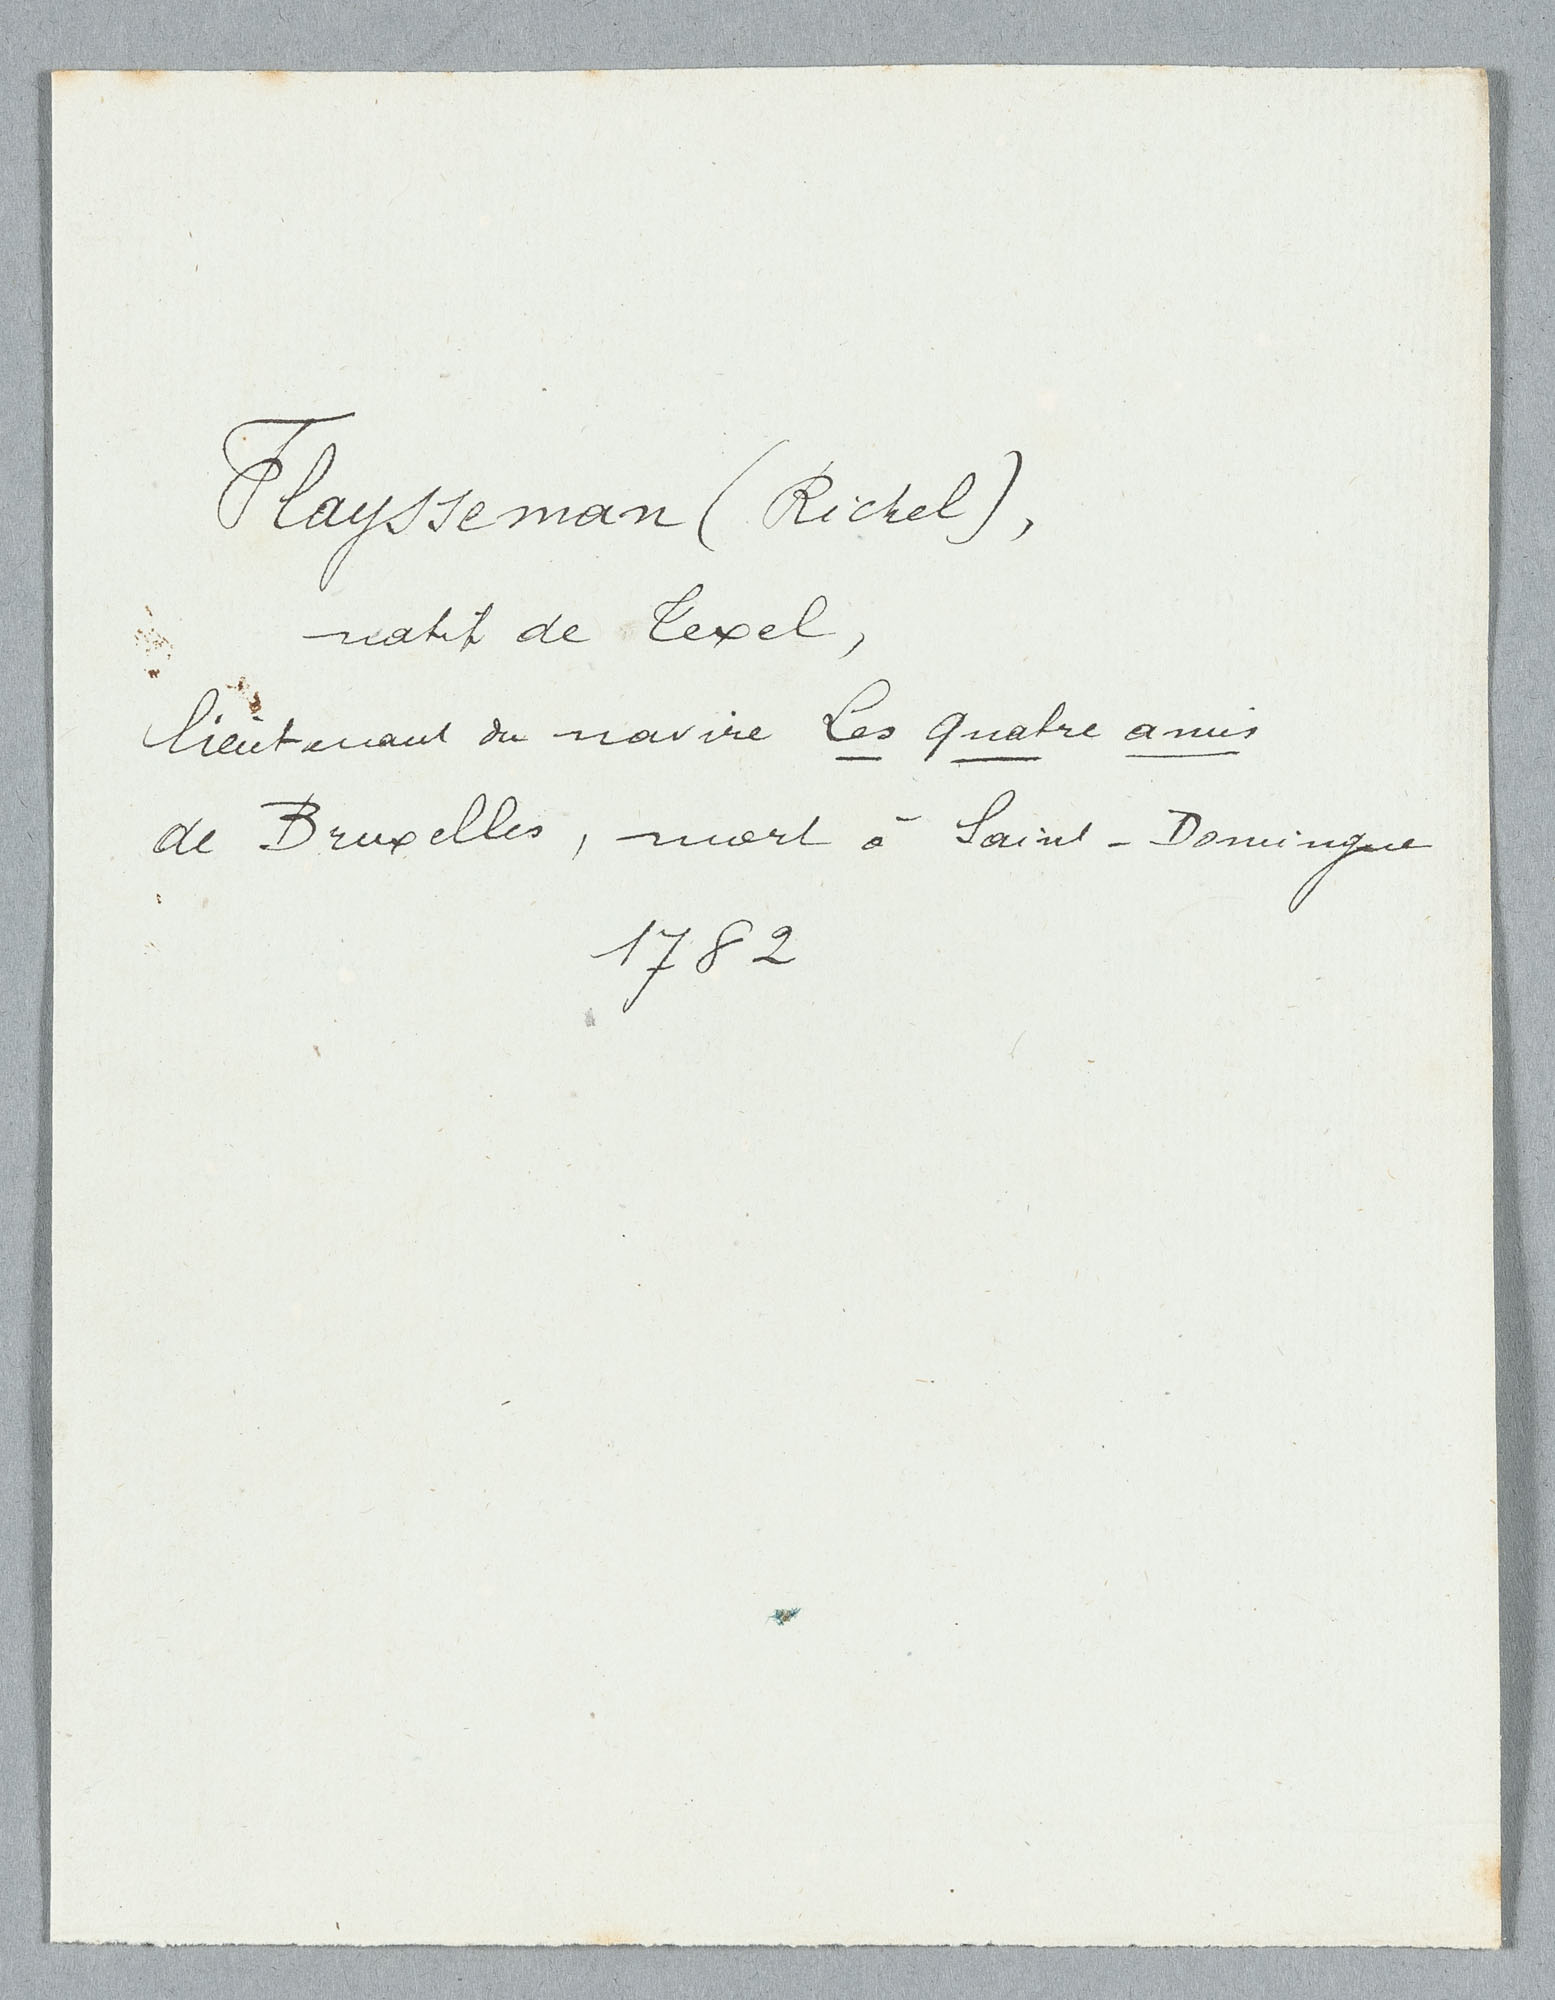 Flaysseman (Richel),
natif de Texel,
lieutenant du navire Les quatre amis
de Bruxelles, mort à Saint-Domingue
1782